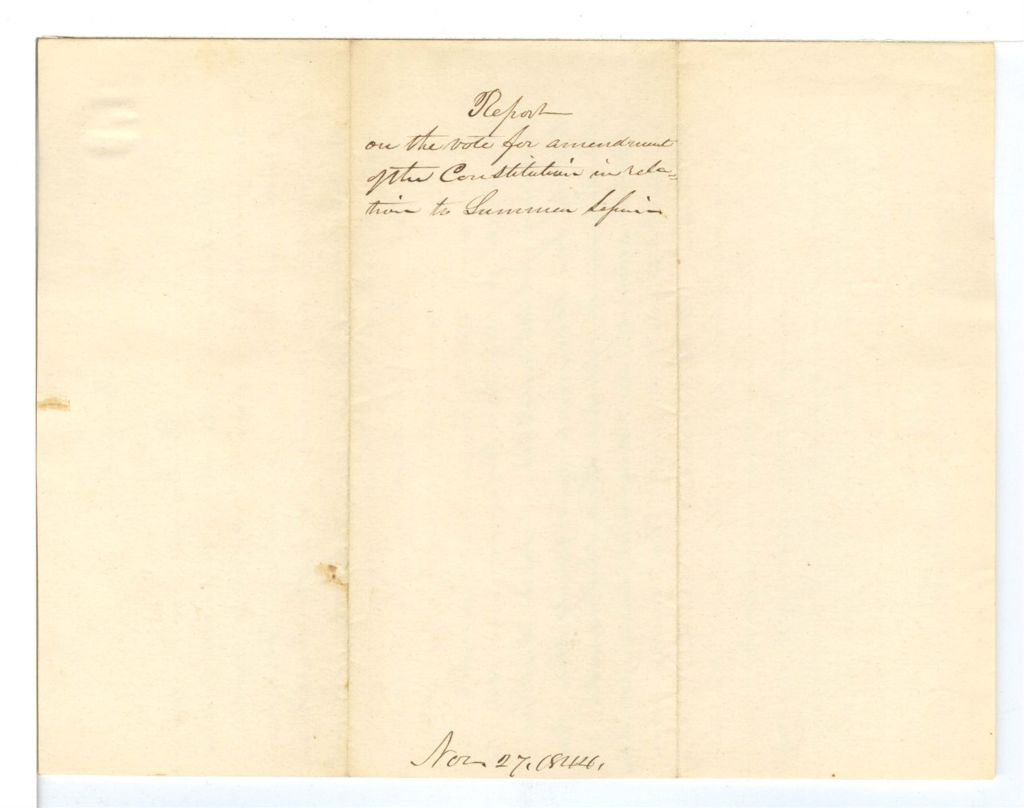 Report
on the vote for amendment
of the Constitution in rela=
tion to Summer Session
Nov 27. 1844.